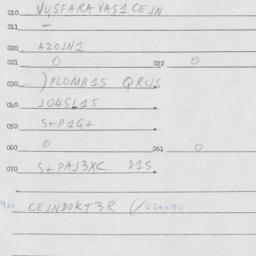 010 VUSFARA VAS1 CEJN
011 —
020 A20JN1
021 0 022 0
030 )PLOMB1S QRUS
040 JO4SL1S
050 S+P1G+
060 0 061 0
070 S+PAJ3XC D1S
900 CEJNDOKT3R